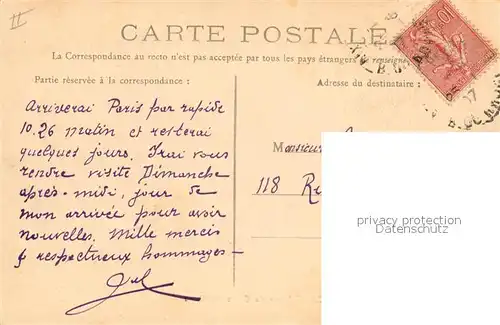 II
CARTE POSTALE
La Correspondance au recto n'est pas acceptée par tous les pays étrangers
Partie réservée à la correspondance :
Adresse du destinataire :
Arriverai Paris par rapide
10.26 matin et resterai
quelques jours. Irai vous
rendre visite Dimanche
après-midi, jour de
mon arrivée pour avoir
nouvelles. Mille mercis
& respectueux hommages -
Monsieur
118 Ru
privacy protection
Datenschutz
10